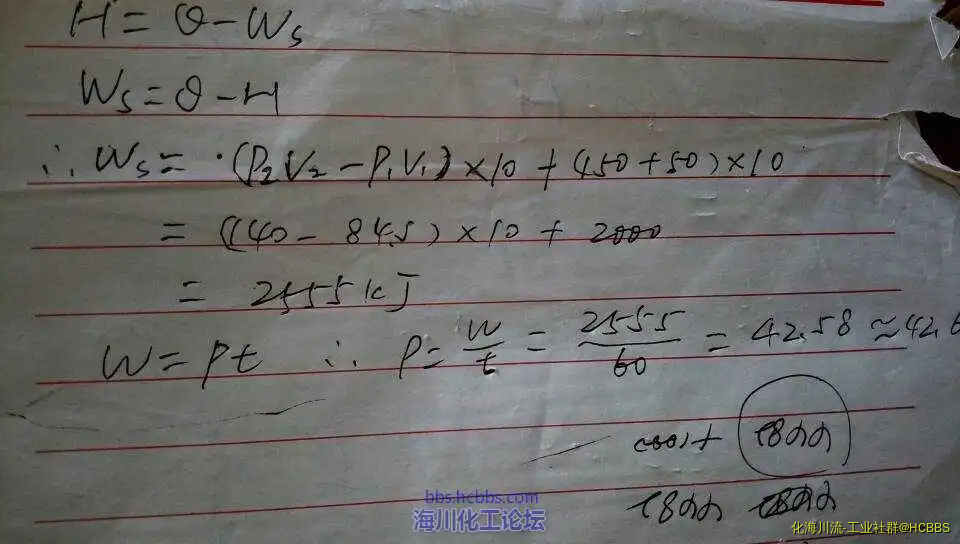 H = Q - Ws
Ws = Q - H
∴ Ws = (P₂V₂ - P₁V₁) × 10 + (450 + 50) × 10
= (140 - 84.5) × 10 + 2000
= 2555 kJ
W = Pt ∴ P = W/t = 2555/60 = 42.58 ≈ 42.6
bbs.hcbbs.com
海川化工论坛
化海川流-工业社群@HCBBS